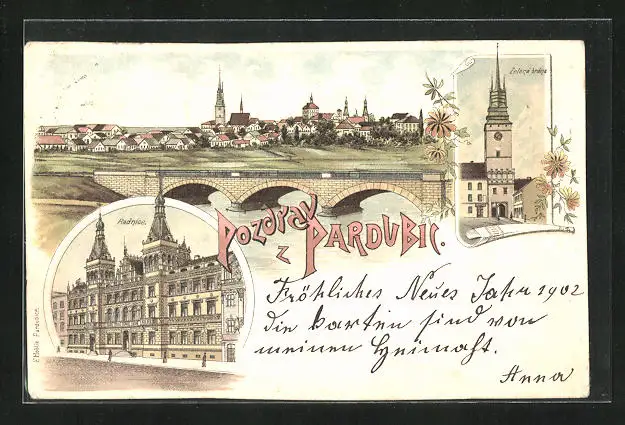 Zelená brána
Radnice.
POZDRAV
Z PARDUBIC.
Fröhliches Neues Jahr 1902
die karten sind von
meinen Heimaht.
Anna